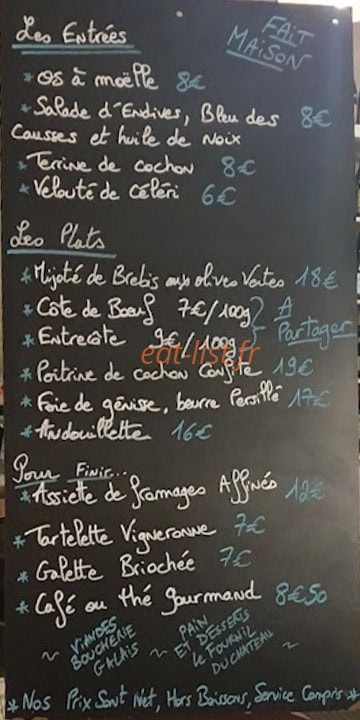 Les Entrées
FAIT
MAISON
* Os à moëlle 8€
* Salade d'Endives, Bleu des 8€
Causses et huile de Noix
* Terrine de cochon 8€
* Velouté de Céleri 6€
Les Plats
* Mijoté de Brebis aux olives Vertes 18€
* Côte de Bœuf 7€/100g } A
* Entrecôte 9€/100g } Partager
eat-list.fr
* Poitrine de cochon Confite 19€
* Foie de génisse, beurre Persillé 17€
* Andouillette 16€
Pour Finir...
* Assiette de fromages Affinés 12€
* Tartelette Vigneronne 7€
* Galette Briochée 7€
* Café ou thé gourmand 8€50
~ VIANDES
BOUCHERIE
GALAIS ~
PAIN
ET DESSERTS
Le FOURNIL
DU CHATEAU ~
* Nos Prix Sont Net, Hors Boissons, Service Compris *